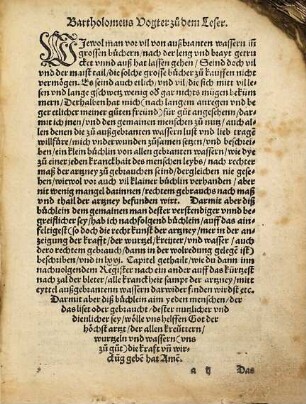 Bartholomeus Vogter zů dem Leser.
WJewol man vor vil von außbranten wassern in
grossen büchern, nach der leng und brayt getru-
cket unnd auß hat lassen gehen / Seind doch vil
und der maist tail / die solche grosse bücher zů kauffen nicht
vermögen. Es seind auch etlich / und vil / die sich mitt vil le-
sen und lange gschwetz wenig oð gar nichts mügen bekům
mern / Derhalben hat mich (nach langem anregen und be
ger etlicher meiner gůten freind) für gůt angesehenn / dar-
mit ich inen / und den gemainen menschen zů nutz / auch al-
len denen die zů außgebranten wassern lust und lieb trage
willfüre / mich underwunden zůsamen setzen / und beschrei-
ben / ein klein büchlin von allen gebranten wassern / wie dye
zů einer jeden kranckheit des menschen leybs / nach rechter
maß der artzney zů gebrauchen seind / dergleichen nie gese-
hen / wiewol vor auch vil kleiner büchlin verhanden / aber
mit wenig mangel darinnen / rechtem gebrauchs nach maß
und thail der artzney befunden wirt. Darmit aber diß
büchlin dem gemainen man dester verstendiger unnd be-
greifflicher sey / hab ich nachfolgends büchlin / auff das ain-
feltigest (so doch die recht kunst der artzney / mer in der an-
zeigung der krafft / der wurtzel / kreüter / und wasser / auch
dero rechtem gebrauch / dann in der wolredung gelegē ist)
beschriben / und in lxvj. Capitel gethailt / wie du dann inn
nachvolgendem Register nach ein ander auff das kürtzest
nach zal der bleter / alle kranckheit sampt der artzney / mit
eyttel außgebrantenn wassern darwider finden wirdst etc.
Darmit aber diß büchlein aim yeden menschen / der
das lißt oder gebraucht / dester nutzlicher und
dienlicher sey / wölle uns helffen Got der
höchst artzt / der allen kreüttern /
wurtzeln und wassern (uns
zů gůt) die krafft uñ wir-
ckūg gebē hat Amē.
a ij Das